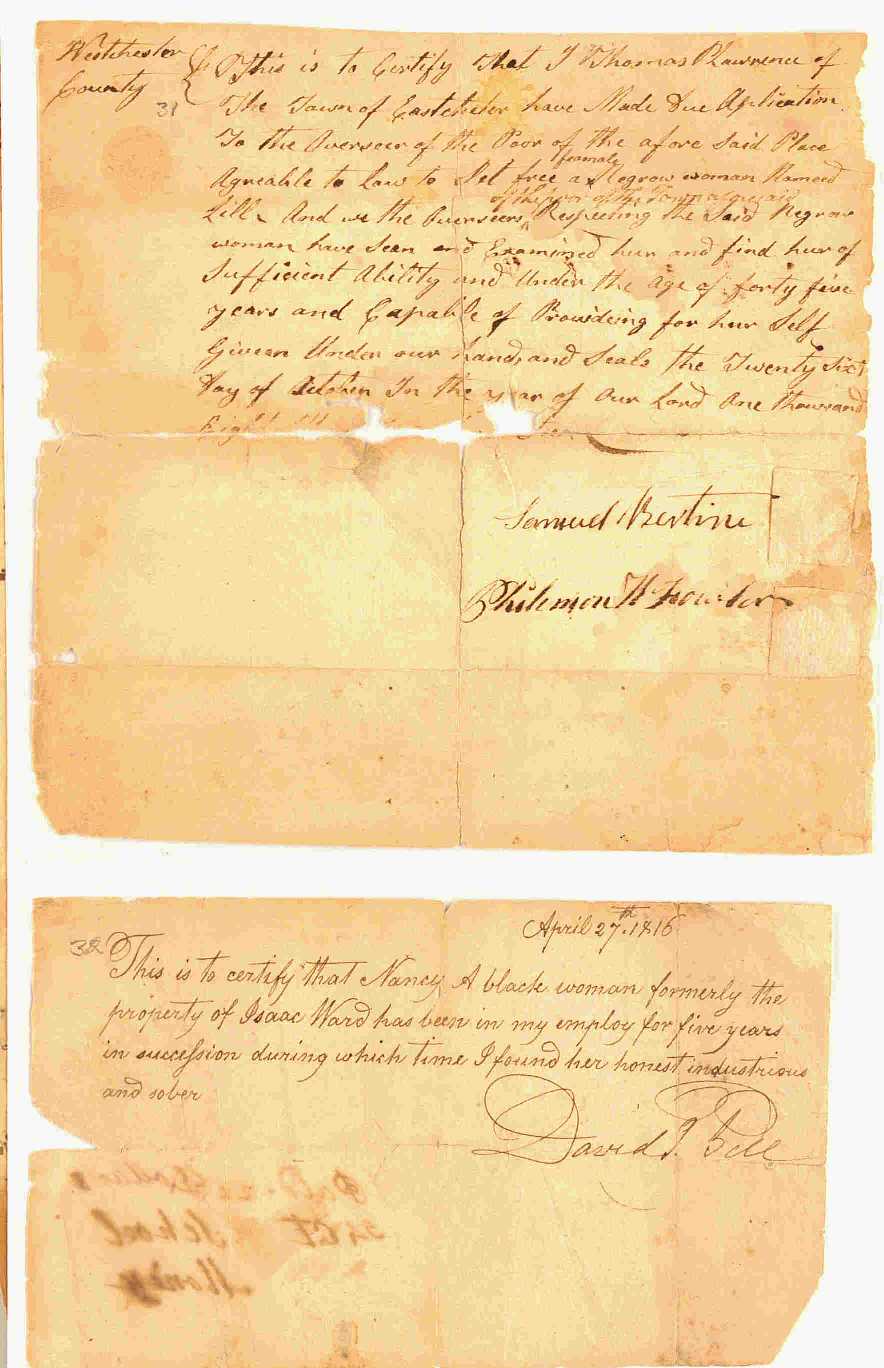 Westchester
County
31
This is to Certify That I Thomas P Lawrence of
The Town of Eastchester have Made Due Application
To the Overseer of the Poor of the afore Said Place
female
Agreable to Law to Set free a Negrow woman Named
of the poor of the Town aforesaid
Lill And we the Overseers Respecting the Said Negrow
woman have Seen and Examined hur and find hur of
Sufficient Ability and Under the Age of forty five
years and Capable of Provideing for hur Self
Given Under our hand and Seals the Twenty Sixt
Day of In the year of Our Lord One thousand
Eight
Samuel Bertine
Philemon H Fowler
April 27th 1816
32
This is to certify that Nancy A black woman formerly the
property of Isaac Ward has been in my employ for five years
in succession during which time I found her honest industrious
and sober
David J. Bell
School
Money